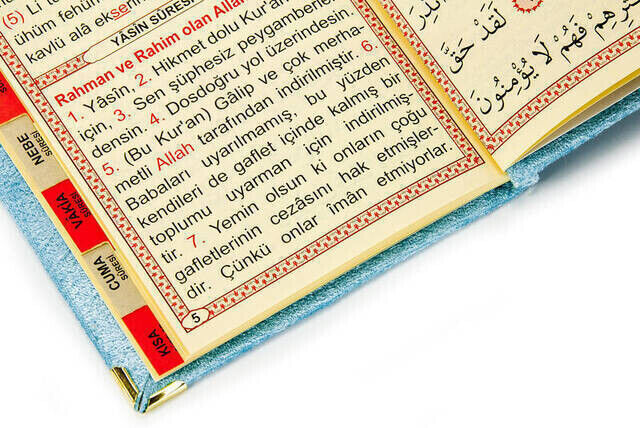 (5) Li t
ühüm fehüm
kavlü alâ ekserih
YÂSÎN SÛRESİ
Rahman ve Rahim olan Allah
1. Yâsîn, 2. Hikmet dolu Kur'an
için, 3. Sen şüphesiz peygamberler
densin. 4. Dosdoğru yol üzerindesin.
5. (Bu Kur'an) Gâlip ve çok merha-
metli Allah tarafından indirilmiştir. 6.
Babaları uyarılmamış, bu yüzden
kendileri de gaflet içinde kalmış bir
toplumu uyarman için indirilmiş-
tir. 7. Yemin olsun ki onların çoğu
gafletlerinin cezâsını hak etmişler-
dir. Çünkü onlar imân etmiyorlar.
5
NEBE
SÛRESİ
VÂKIA
SÛRESİ
CUMA
SÛRESİ
KISA
لَقَدْ حَقَّ
فَهُمْ لَا يُؤْمِنُونَ